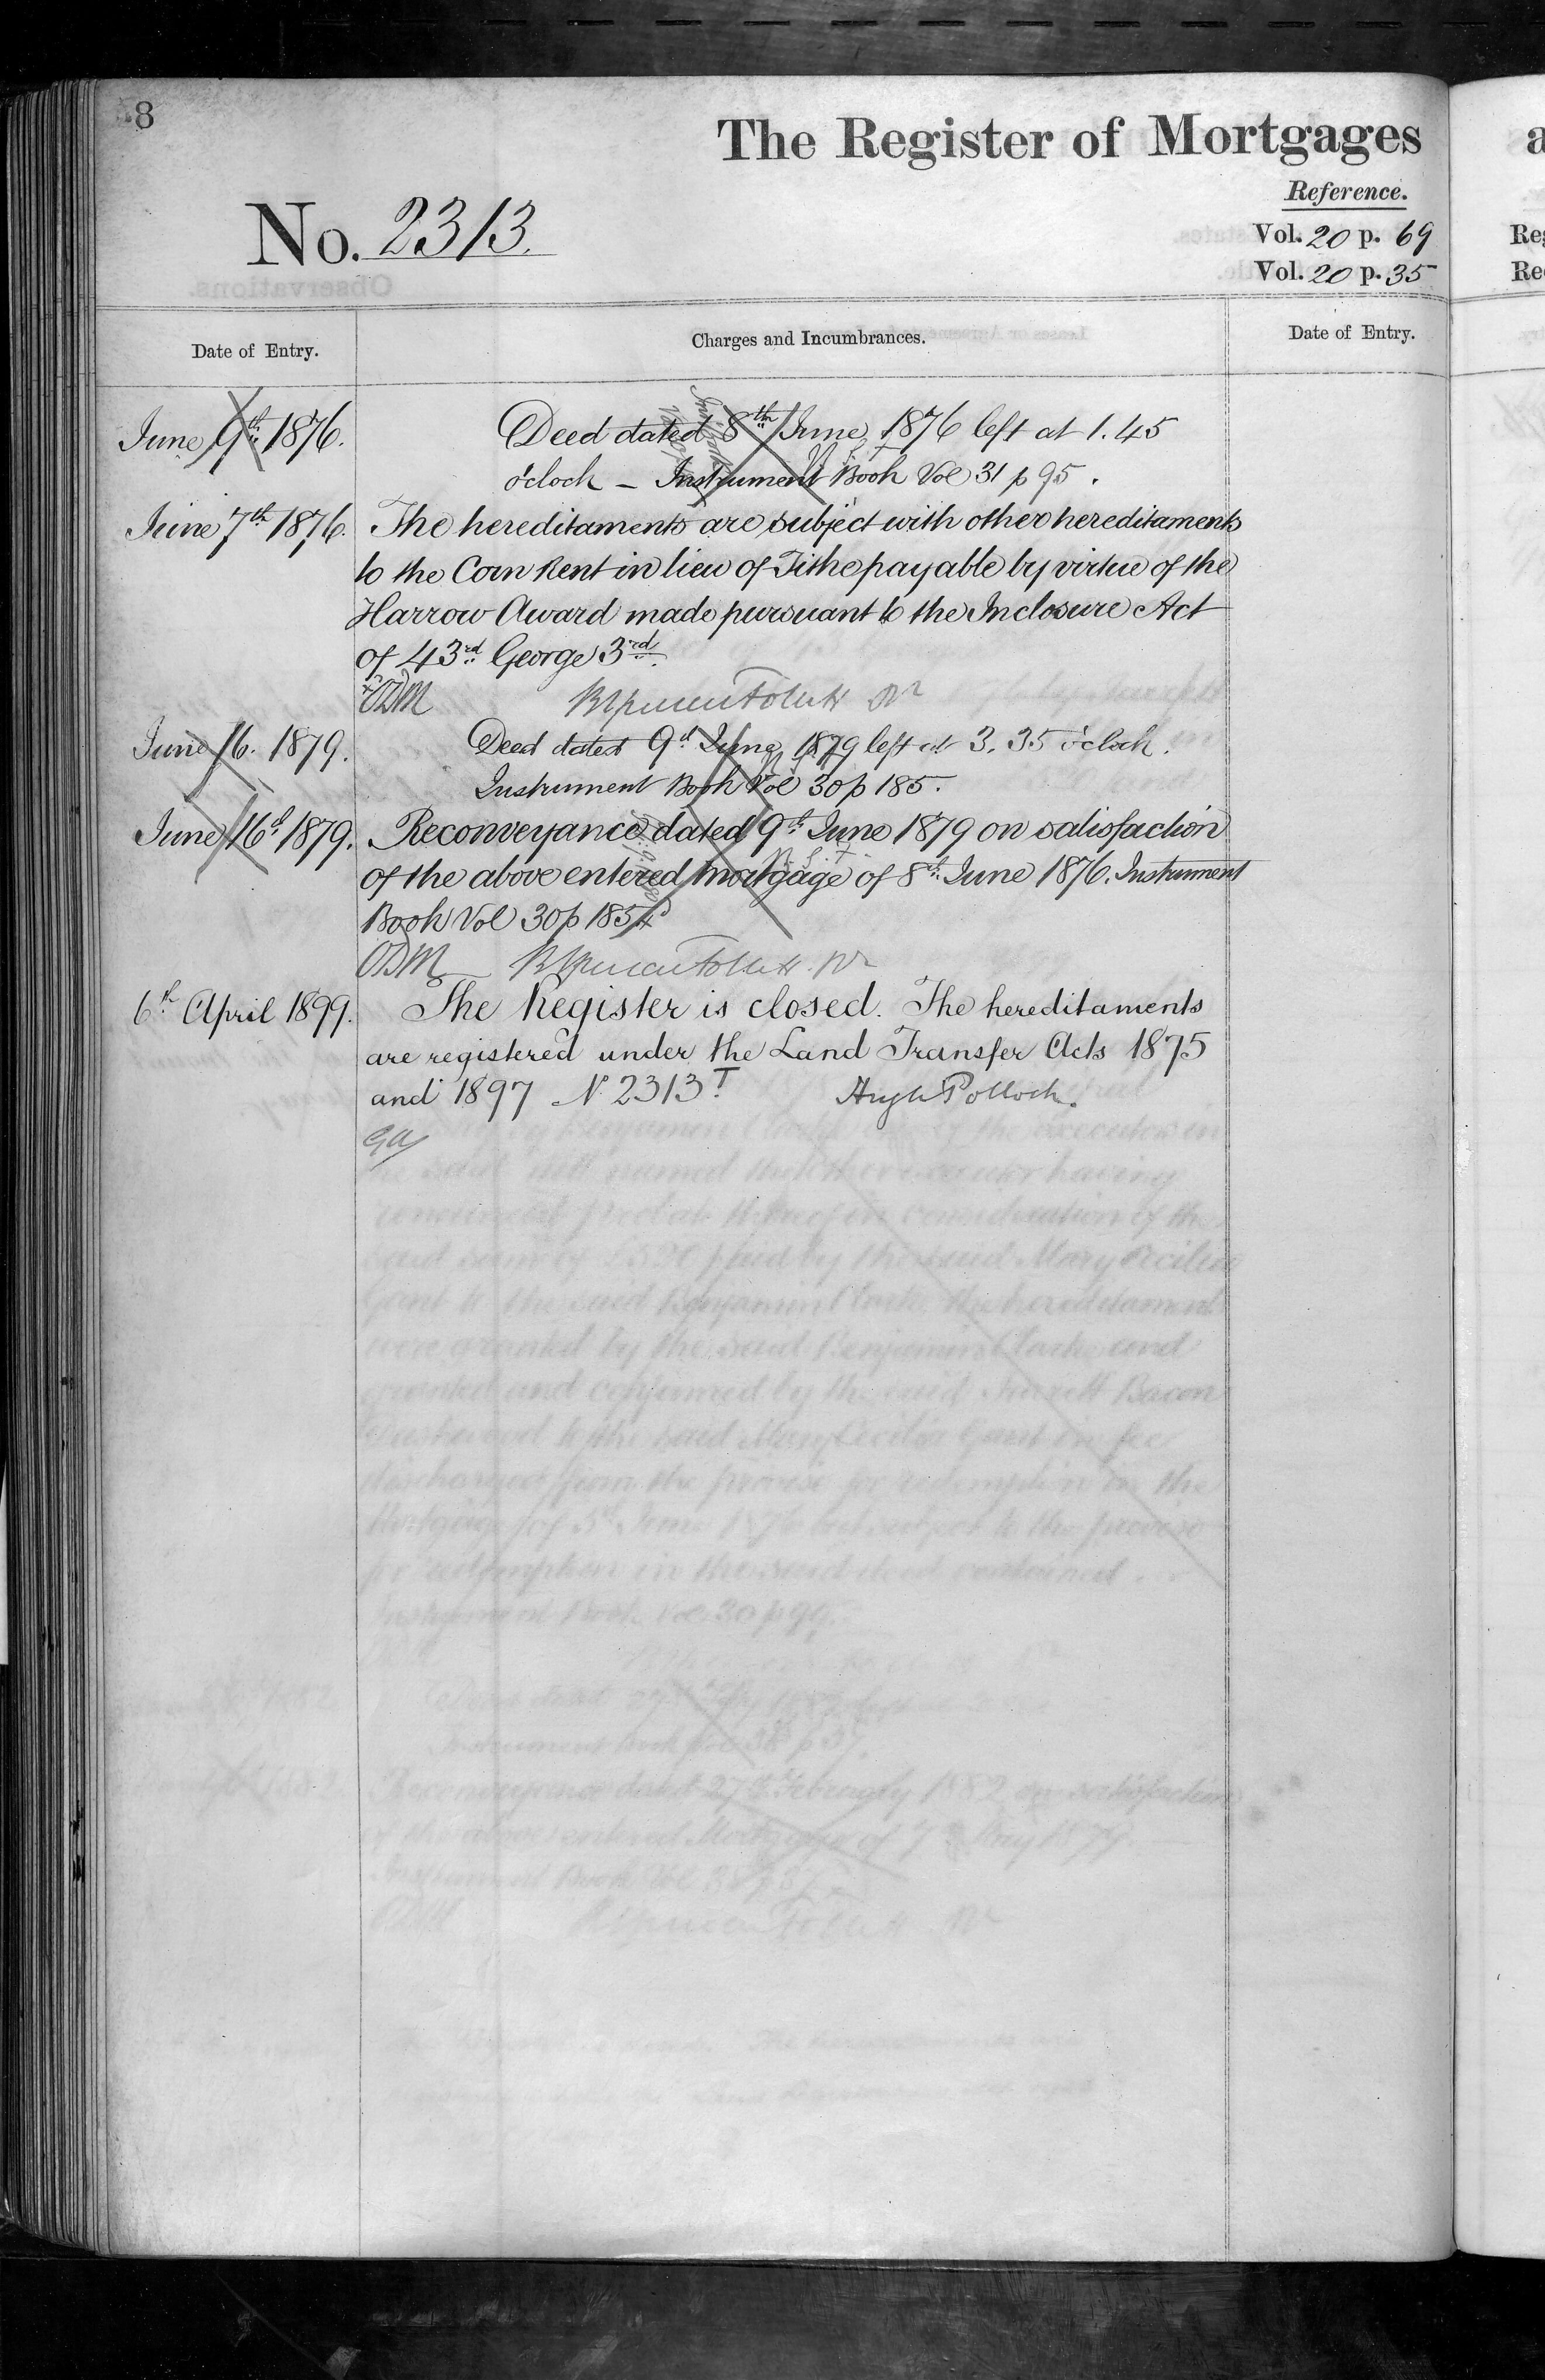 8
The Register of Mortgages
Reference.
No. 2313.
Vol. 20 p. 69
Vol. 20 p. 35
Date of Entry.
Charges and Incumbrances.
Date of Entry.
June 9th 1876.
Deed dated 8th June 1876 left at 1.45
o'clock – Instrument Book Vol 31 p 95.
June 7th 1876.
The hereditaments are subject with other hereditaments
to the Corn Rent in lieu of Tithe payable by virtue of the
Harrow Award made pursuant to the Inclosure Act
of 43rd George 3rd.
June 16. 1879.
Deed dated 9th June 1879 left at 3.35 o'clock.
Instrument Book Vol 30 p 185.
June 16th 1879.
Reconveyance dated 9th June 1879 on satisfaction
of the above entered Mortgage of 8th June 1876. Instrument
Book Vol 30 p 185
6th April 1899.
The Register is closed. The hereditaments
are registered under the Land Transfer Acts 1875
and 1897 No 2313T. Hugh Pollock.